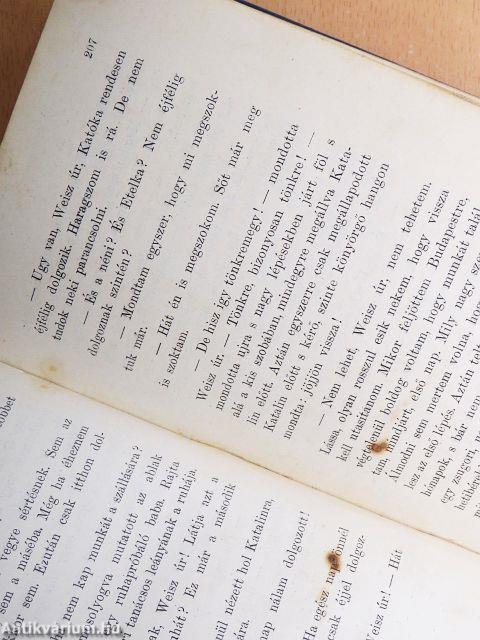 207
— Ugy van, Weisz úr, Katóka rendesen
éjfélig dolgozik. Haragszom is rá. De nem
tudok neki parancsolni.
— És a néni? És Etelka? Nem éjfélig
dolgoznak szintén?
— Mondtam egyszer, hogy mi megszok-
tuk már.
— Hát én is megszokom. Sőt már meg
is szoktam.
— De hisz így tönkremegy! — mondotta
Weisz úr. — Tönkre, bizonyosan tönkre! —
mondotta ujra s nagy lépésekben járt föl s
alá a kis szobában, mindegyre megállva Kata-
lin előtt. Aztán egyszerre csak megállapodott
Katalin előtt s kérő, szinte könyörgő hangon
mondta: jöjjön vissza!
— Nem lehet, Weisz úr, nem tehetem.
Lássa, olyan rosszul esik nekem, hogy vissza
kell utasítanom. Mikor feljöttem Budapestre,
végtelenül boldog voltam, hogy munkát talál-
tam, mindjárt, első nap. Mily nagy
Álmodni sem mertem volna, hogy
lesz az első lépés. Aztán
hónapok, s bár nem
egy zsugori,
többet
vegye sértésnek. Sem az
sem a másoba. Még ha éheznem
sem. Ezután csak itthon dol-
nem kap munkát a szállására?
olyogva mutatott az ablak
ruhapróbáló baba. Rajta
tanácsos leányának a ruhája.
Weisz úr! Látja azt a
ruhát? Ez már a második
nézett hol Katalinra,
nap nálam dolgozott!
Ha egész nap önnél
csak éjjel dolgoz-
Weisz úr! — Hát
Antikvárium.hu